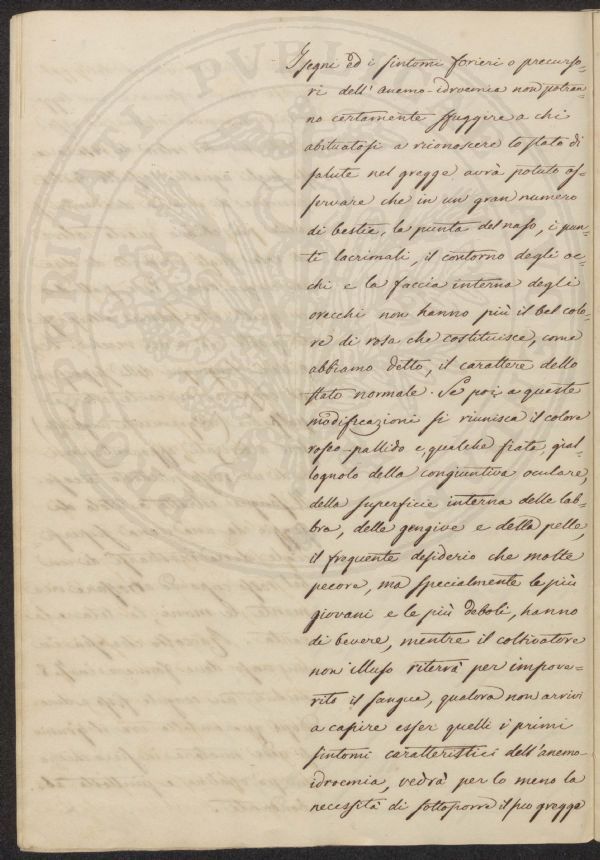 I segni ed i sintomi forieri o precurso=
ri dell'anemo-idroemia non potran=
no certamente sfuggire a chi
abituatosi a riconoscere lo stato di
salute nel gregge avrà potuto os=
servare che in un gran numero
di bestie, la punta del naso, i pun=
ti lacrimali, il contorno degli oc=
chi e la faccia interna degli
orecchi non hanno più il bel colo=
re di rosa che costituisce, come
abbiamo detto, il carattere dello
stato normale. Se poi a queste
modificazioni si riunisca il colore
roseo-pallido e, qualche fiata, gial=
lognolo della congiuntiva oculare,
della superficie interna delle lab=
bra, delle gengive e della pelle,
il frequente desiderio che molte
pecore, ma specialmente le più
giovani e le più deboli, hanno
di bevere, mentre il coltivatore
non illuso riterrà per impove=
rito il sangue, qualora non arrivi
a capire esser quelli i primi
sintomi caratteristici dell'anemo-
idroemia, vedrà per lo meno la
necessità di sottoporre il suo gregge